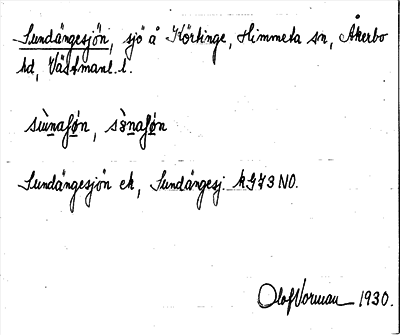 Sundängesjön, sjö å Körtinge, Himmeta sn, Åkerbo
hd, Västmanl. l.
Sundängesjön ek, Sundängesj. h 973 NO.
Olof Vorman 1930.